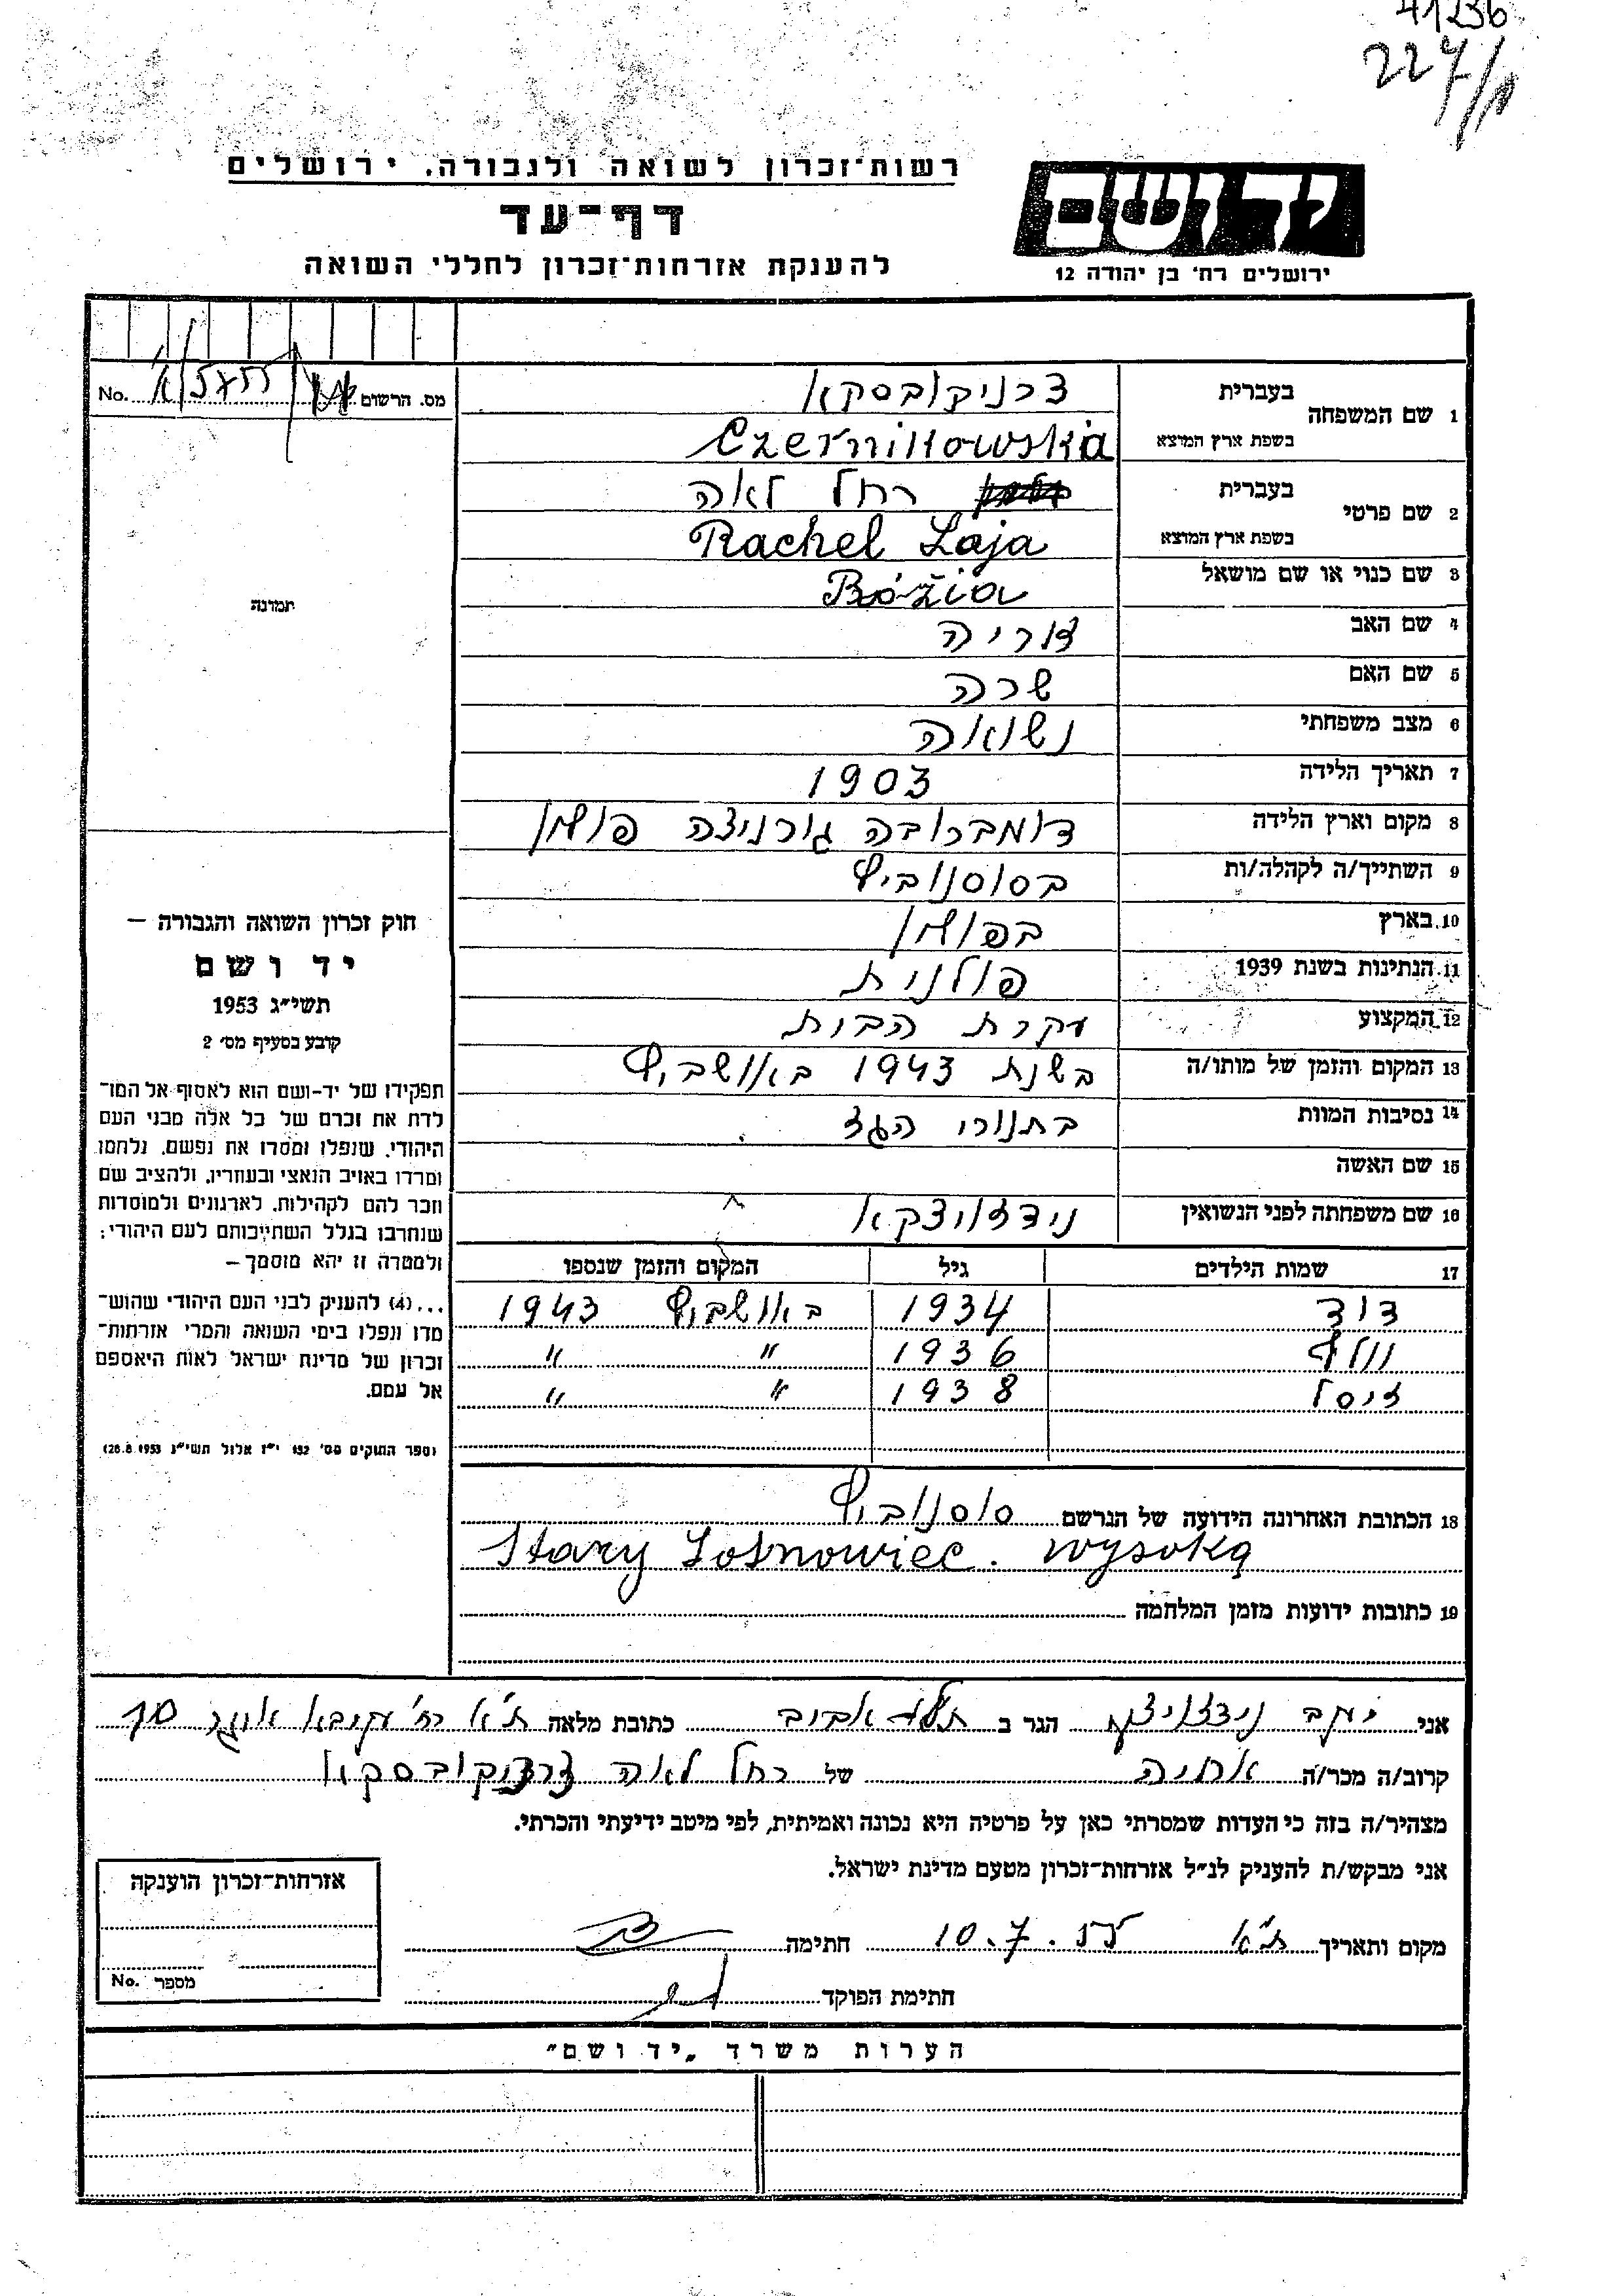 41236
227/
רשות־זכרון לשואה ולגבורה. ירושלים
דף־עד
להענקת אזרחות־זכרון לחללי השואה
יד ושם
ירושלים רח׳ בן יהודה 12
מס. הרשום No.
1 שם המשפחה
בעברית צרניקובסקא
בשפת ארץ המוצא Czernikowska
2 שם פרטי
בעברית רחל לאה
בשפת ארץ המוצא Rachel Laja
3 שם כנוי או שם מושאל Bózia
4 שם האב
5 שם האם שרה
6 מצב משפחתי נשואה
7 תאריך הלידה 1903
8 מקום וארץ הלידה דומברובה גורניצה פולין
9 השתייך/ה לקהלה/ות בסוסנוביץ
10. בארץ בפולין
11. הנתינות בשנת 1939 פולנית
12 המקצוע עקרת הבית
13 המקום והזמן של מותו/ה בשנת 1943 באושביץ
14 נסיבות המוות בתנורי הגז
15 שם האשה
16 שם משפחתה לפני הנשואין
17 שמות הילדים גיל המקום והזמן שנספו
דוד 1934 באושביץ 1943
וולף 1936 " "
זיסל 1938 " "
18 הכתובת האחרונה הידועה של הנרשם סוסנוביץ
Stary Sosnowiec. Wysoka
19 כתובות ידועות מזמן המלחמה
תמונה
חוק זכרון השואה והגבורה —
יד ושם
תשי״ג 1953
קובע בסעיף מס׳ 2
תפקידו של יד-ושם הוא לאסוף אל המו־
לדת את זכרם של כל אלה מבני העם
היהודי, שנפלו ומסרו את נפשם, נלחמו
ומרדו באויב הנאצי ובעוזריו, ולהציב שם
וזכר להם לקהילות, לארגונים ולמוסדות
שנחרבו בגלל השתייכותם לעם היהודי;
ולמטרה זו יהא מוסמך —
...(4) להעניק לבני העם היהודי שהוש־
מדו ונפלו בימי השואה והמרי אזרחות־
זכרון של מדינת ישראל לאות היאספם
אל עמם.
(ספר החוקים מס׳ 132 י״ז אלול תשי״ג 28.8.1953)
אני יעקב הגר ב תל אביב כתובת מלאה ת״א רח׳ עקיבא
קרוב/ה מכר/ה של רחל לאה צרניקובסקא
מצהיר/ה בזה כי העדות שמסרתי כאן על פרטיה היא נכונה ואמיתית, לפי מיטב ידיעתי והכרתי.
אני מבקש/ת להעניק לנ״ל אזרחות־זכרון מטעם מדינת ישראל.
מקום ותאריך ת״א 10.7.55 חתימה
חתימת הפוקד
אזרחות־זכרון הוענקה
מספר No.
הערות משרד „יד ושם״